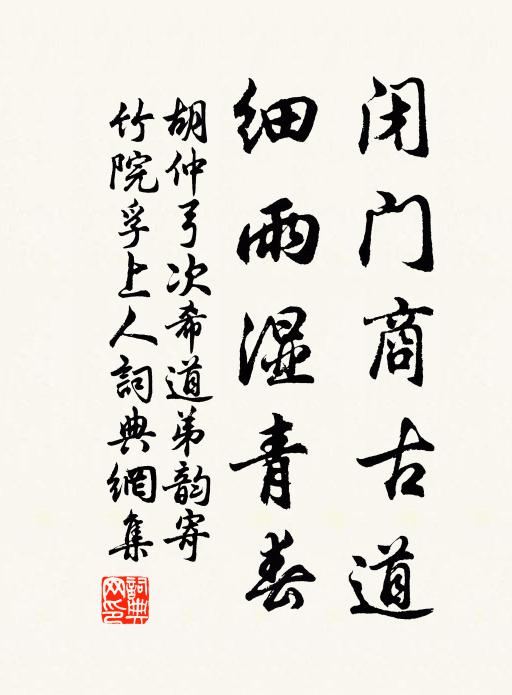 闭门商古道
细雨湿青春
胡仲弓次希道弟韵寄
竹院孚上人詞典網集
詞典
网印